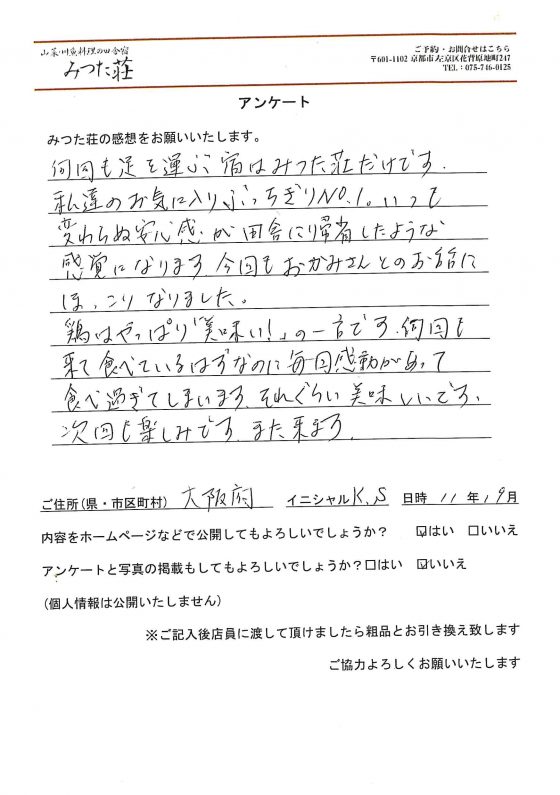 山菜・川魚料理の田舎宿
みつた荘
ご予約・お問合せはこちら
〒601-1102 京都市左京区花背原地町247
TEL：075-746-0125
アンケート
みつた荘の感想をお願いいたします。
何回も足を運ぶ宿はみつた荘だけです.
私達のお気に入りぶっちぎりNO.1。いつも
変わらぬ安心感が田舎に帰省したような
感覚になります 今回もおかみさんとのお話に
ほっこりなりました。
鶏はやっぱり「美味い!」の一言です.何回も
来て食べているはずなのに毎回感動があって
食べ過ぎてしまいます.それぐらい美味しいです、
次回も楽しみです.また来ます.
ご住所(県・市区町村) 大阪府 イニシャル K.S 日時 11 年 19月
内容をホームページなどで公開してもよろしいでしょうか？ ☑はい □いいえ
アンケートと写真の掲載もしてもよろしいでしょうか？□はい ☑いいえ
(個人情報は公開いたしません)
※ご記入後店員に渡して頂けましたら粗品とお引き換え致します
ご協力よろしくお願いいたします